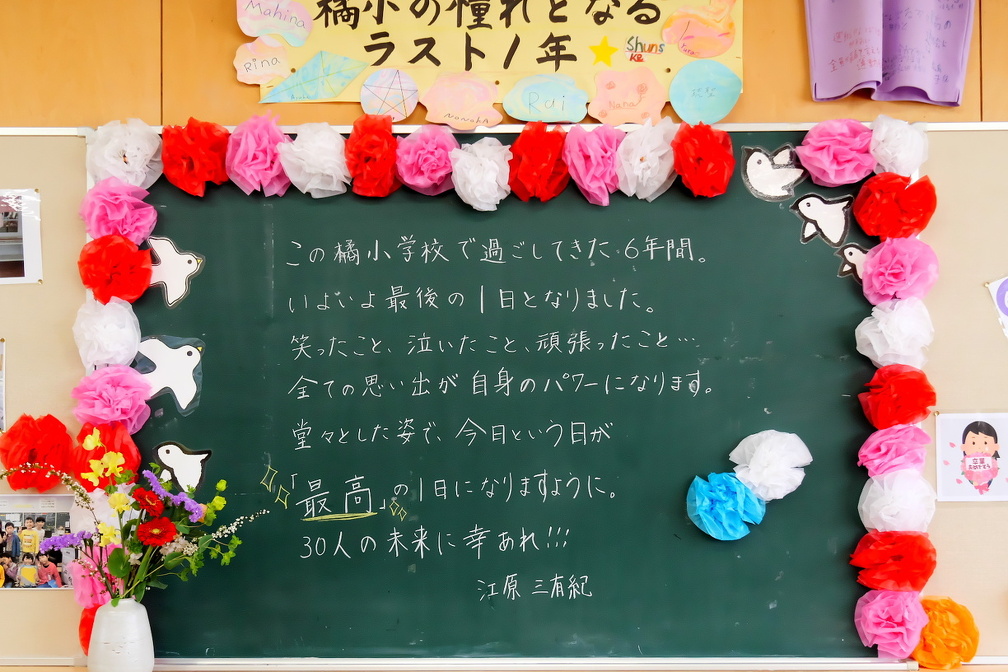 橘小の憧れとなる
ラスト1年
Mahina
Rina
Shuns
ke
NonokA
Rui
Nana
この橘小学校で過ごしてきた6年間。
いよいよ最後の1日となりました。
笑ったこと、泣いたこと、頑張ったこと…
全ての思い出が自身のパワーになります。
堂々とした姿で、今日という日が
「最高」の1日になりますように。
30人の未来に幸あれ!!!
江原 三有紀
卒業
おめでとう